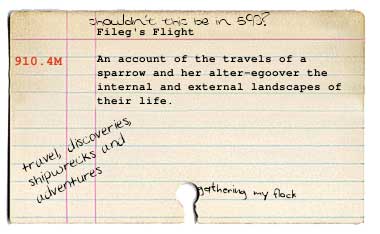 shouldn't this be in 590?
Fileg's Flight
910.4M
An account of the travels of a
sparrow and her alter-egoover the
internal and external landscapes of
their life.
travel, discoveries,
shipwrecks and
adventures
gathering my flock